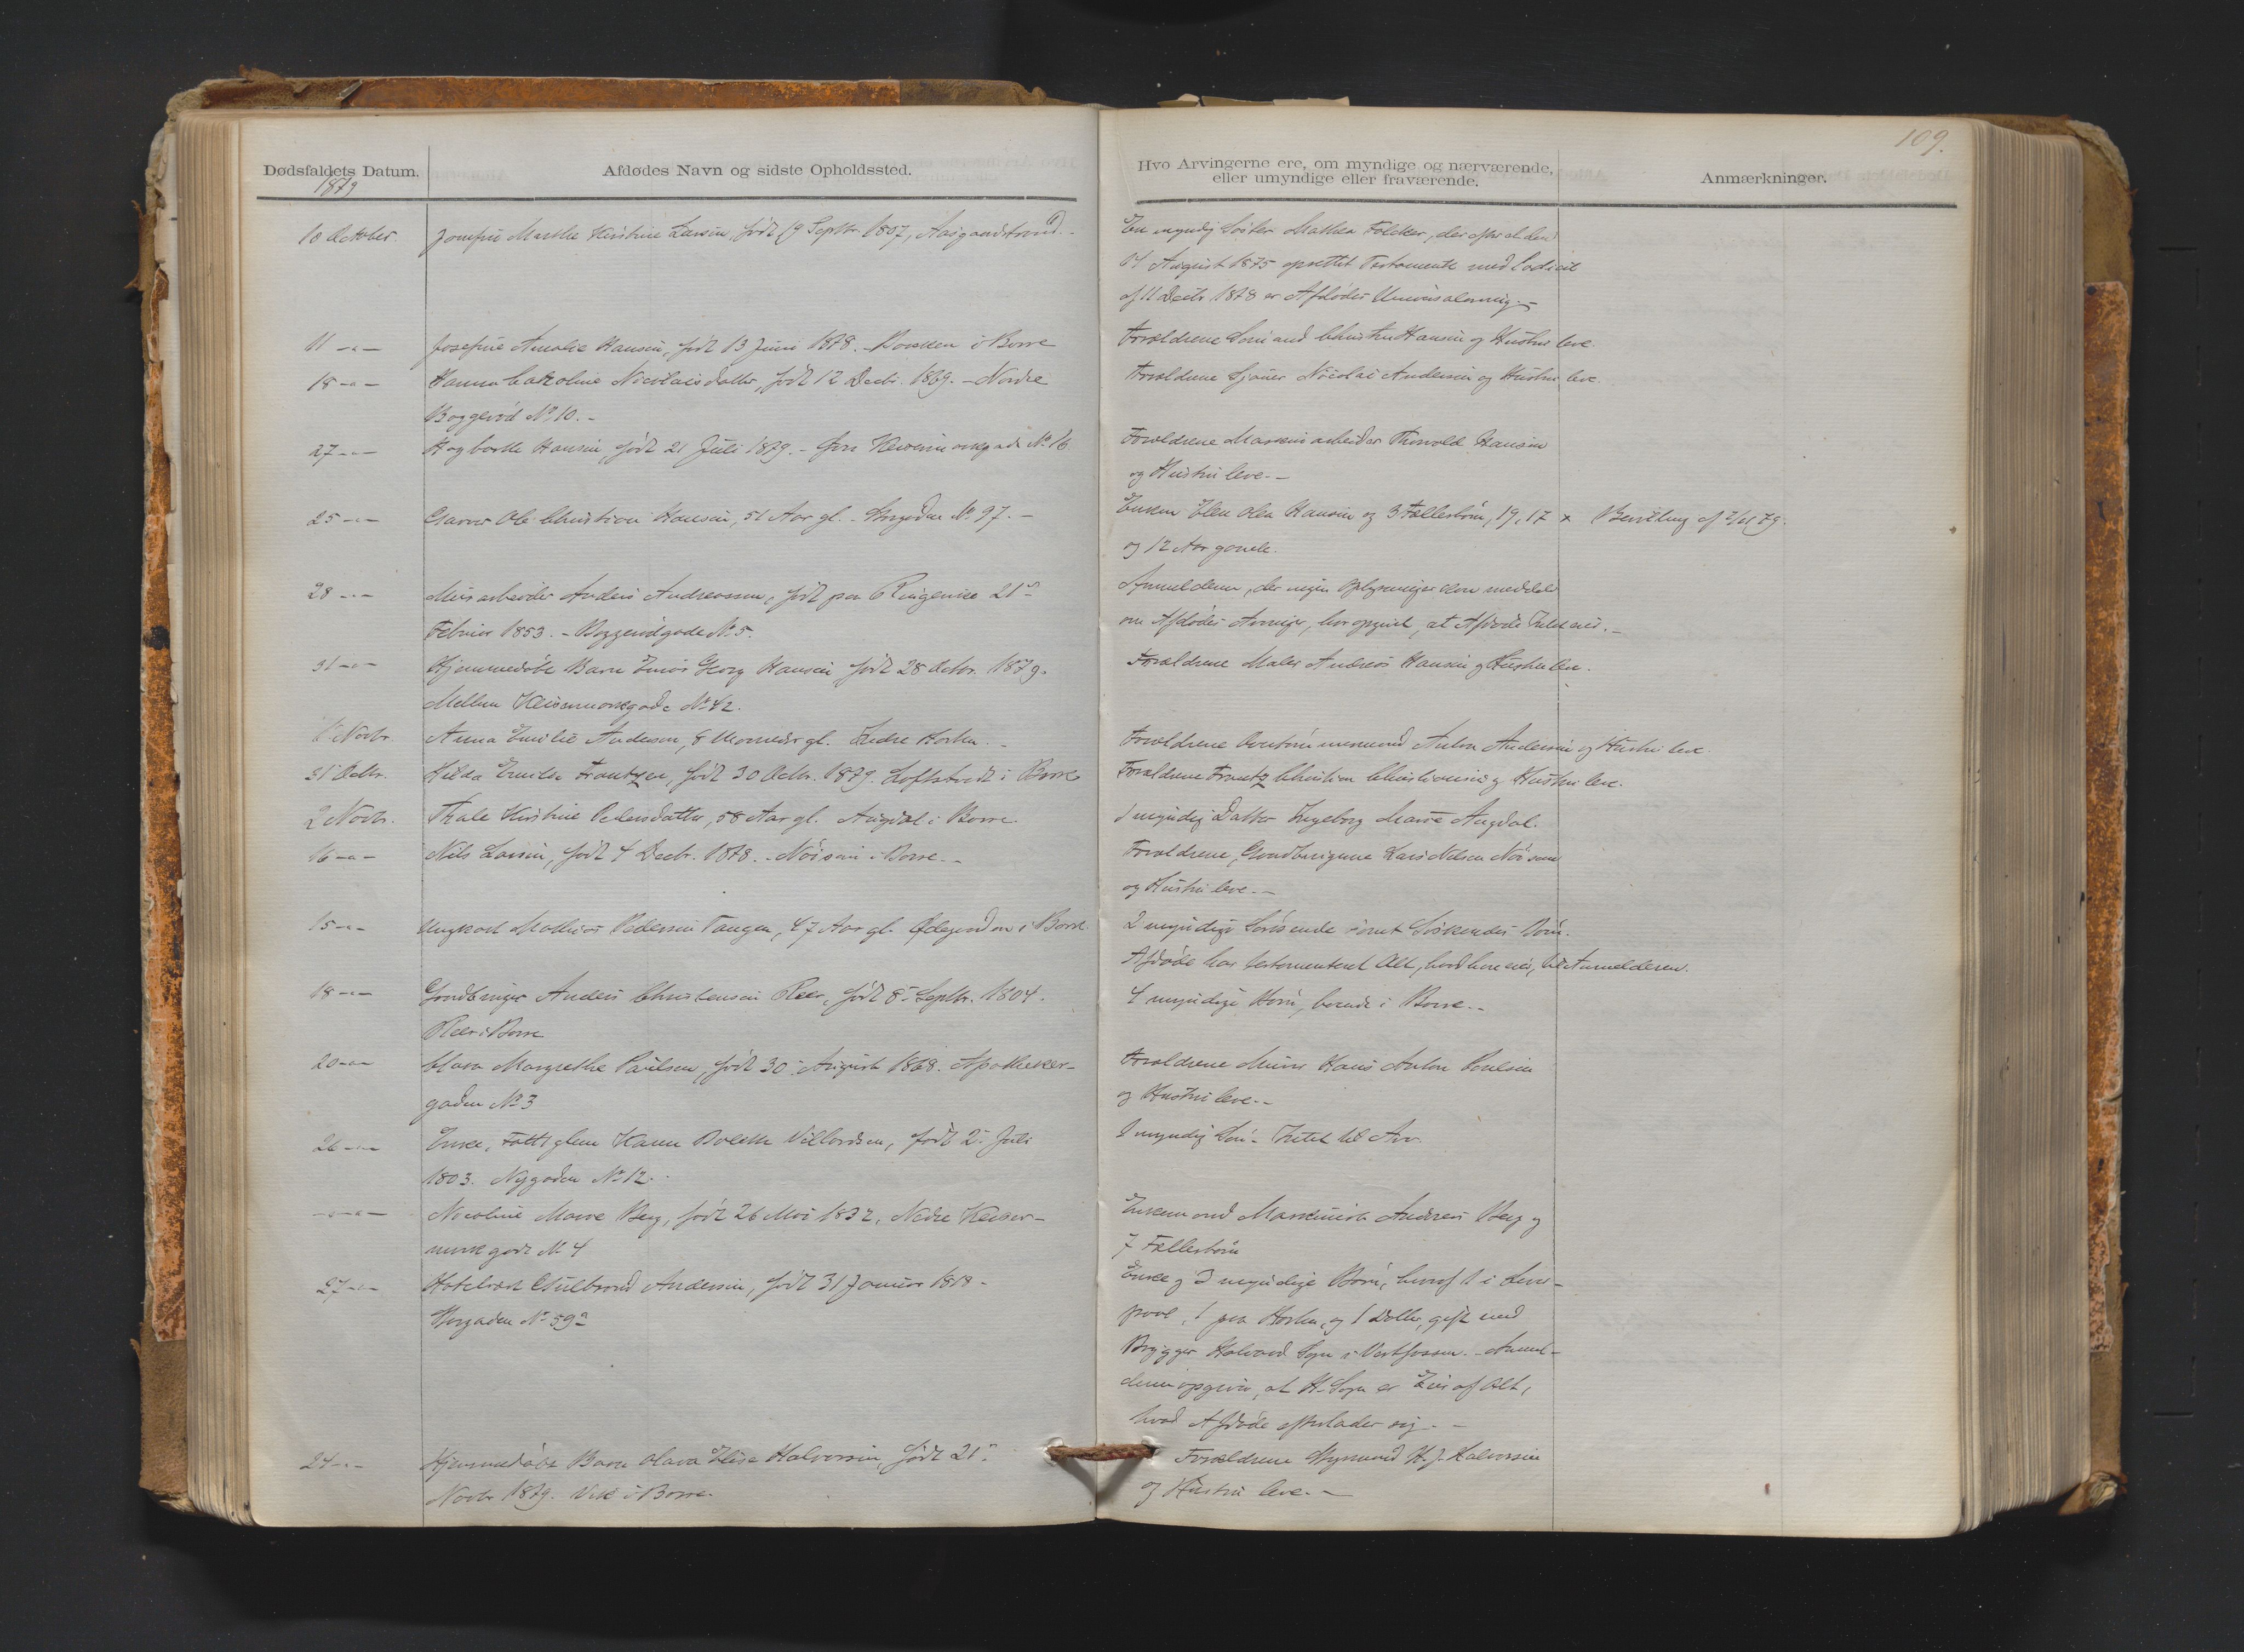 109.
Dødsfaldets Datum.
1879
Afdødes Navn og sidste Opholdssted.
Hvo Arvingerne ere, om myndige og nærværende,
eller umyndige eller fraværende.
Anmærkninger.
10 October.
Jomfru Marthe Kirstine Larsen, født 19 Septbr 1807, Aasgaardstrand.
En myndig Søster Mathea Folcker, der efter et den
14 August 1875 oprettet Testamente med Codicil
af 11 Decbr 1878 er Afdødes Universalarving.
11 -"-
Josefine Amalie Hansen, født 13 Juni 1878. i Borre
Forældrene Sømand Christen Hansen og Hustru leve.
18 -"-
Hanna Caroline Nicolaisdatter, født 12 Decbr. 1869. - Nordre
Baggerød No 10. -
Forældrene Sjauer Nicolai Andersen og Hustru leve.
27 -"-
Hagbarth Hansen, født 21 Juli 1879. - No 16
Forældrene Maskinarbeider Thorvald Hansen
og Hustru leve. -
25 -"-
Garver Ole Christian Hansen, 51 Aar gl. - Storgaden No 97. -
Enken Elen Olea Hansen og 3 Fællesbørn, 19, 17
og 12 Aar gamle.
x Bevilling af 79.
28 -"-
Murarbeider Anders Andreassen, født paa Ringerike 21de
Februar 1853. - Baggerødgade No 5.
Anmelderen, der ingen Oplysninger kan meddele
om Afdødes Arvinger, har opgivet, at Afdøde Intet eied. -
31 -"-
Hjemmedøbt Barn Georg Hansen født 28 Octbr. 1879.
Mellem Keisemarkgade No 42.
Forældrene Maler Andreas Hansen og Hustru leve.
1 Novbr.
Anna Emilie Andersen, 8 Maaneder gl. Indre Horten. -
Forældrene Anton Andersen og Hustru leve.
31 Octbr.
Hilda Emilie Frantzen, født 30 Octbr. 1879. i Borre
Forældrene Frantz Christian Christiansen og Hustru leve.
2 Novbr.
Thale Kirstine Pedersdatter, 58 Aar gl. Augdal i Borre.
1 myndig Datter Ingeborg Marie Augdal.
16 -"-
Nils Larsen, født 4 Decbr. 1878. - i Borre. -
Forældrene, Gaardbrugerne Lars Nilsen
og Hustru leve. -
15 -"-
Ungkarl Mathias Pedersen Tangen, 47 Aar gl. Ødegaarden i Borre.
2 myndige Søskende samt Søskendes Børn.
Afdøde har testamenteret Alt, hvad han eied, til Anmelderen.
18 -"-
Gaardbruger Anders Christensen Reer, født 8de Septbr. 1804.
Reer i Borre
4 myndige Børn, boende i Borre. -
20 -"-
Clara Margrethe Paulsen, født 30 August 1868. Apotheker-
gaden No 3
Forældrene Murer Hans Anton Poulsen
og Hustru leve. -
26 -"-
Enke, Fattiglem Karen Bolette Villardsen, født 2 Juli
1803. Nygaden No 12.
1 myndig Søn - Intet til Arv.
-"-"-
Nicoline Marie Berg, født 26 Mai 1832, Nedre Keiser-
markgade No 4
Enkemand Maskinist Andreas Berg og
7 Fællesbørn
27 -"-
Gulbrand Andersen, født 31 Januar 1818 -
Storgaden No 59a
Enke og 3 myndige Børn, hvoraf 1 i Liver-
pool, 1 paa Horten, og 1 Datter, gift med
Brygger Halvard i Vestfossen. - Anmel-
deren opgiver, at H. er Eier af Alt,
hvad Afdøde efterlader sig. -
24 -"-
Hjemmedøbt Barn Olava Elise Halvorsen, født 21de
Novbr 1879. Vik i Borre.
Forældrene Styrmand H. J. Halvorsen
og Hustru leve. -